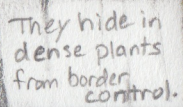 They hide in
dense plants
from border
control.